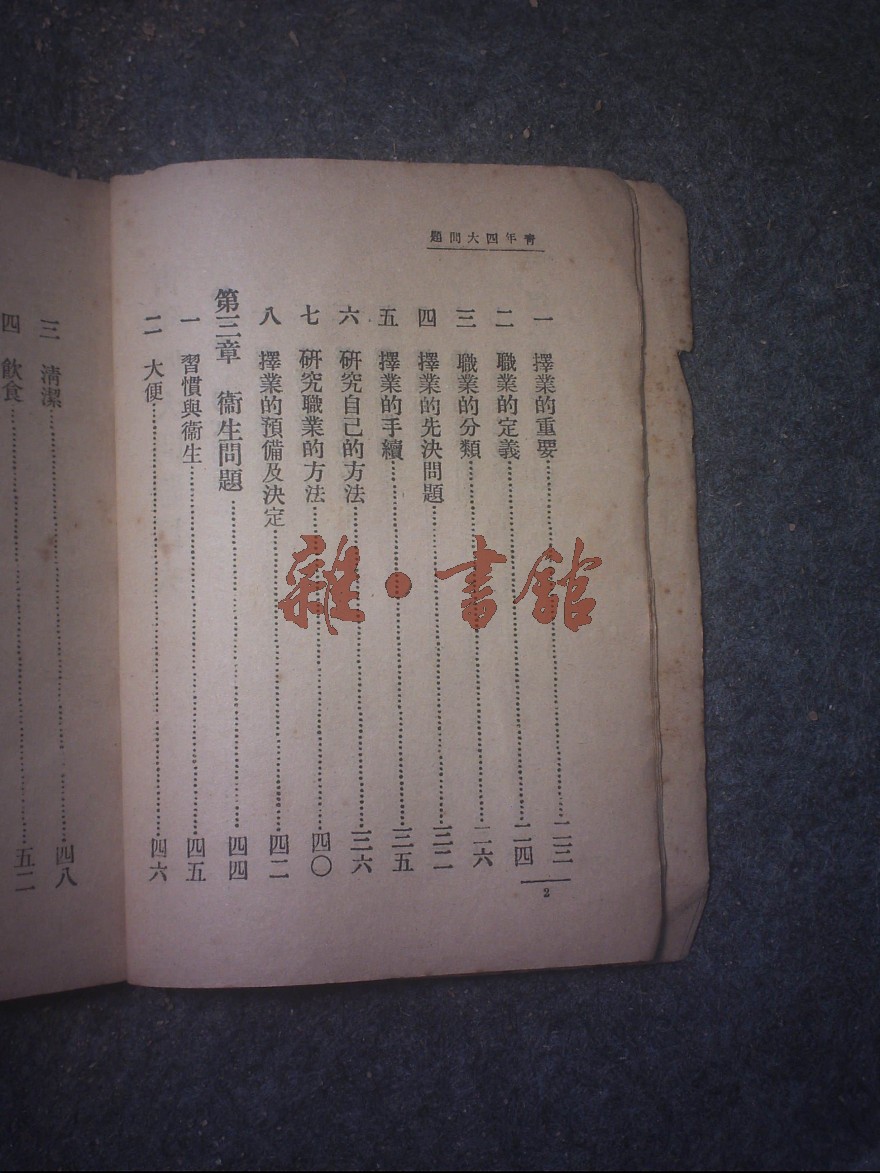 青年四大問題
一 擇業的重要 二三
二 職業的定義 二四
三 職業的分類 二六
四 擇業的先決問題 三二
五 擇業的手續 三五
六 研究自己的方法 三六
七 研究職業的方法 四〇
八 擇業的預備及決定 四二
第三章 衞生問題 四四
一 習慣與衞生 四五
二 大便 四六
三 清潔 四八
四 飲食 五二
2
雜·書館